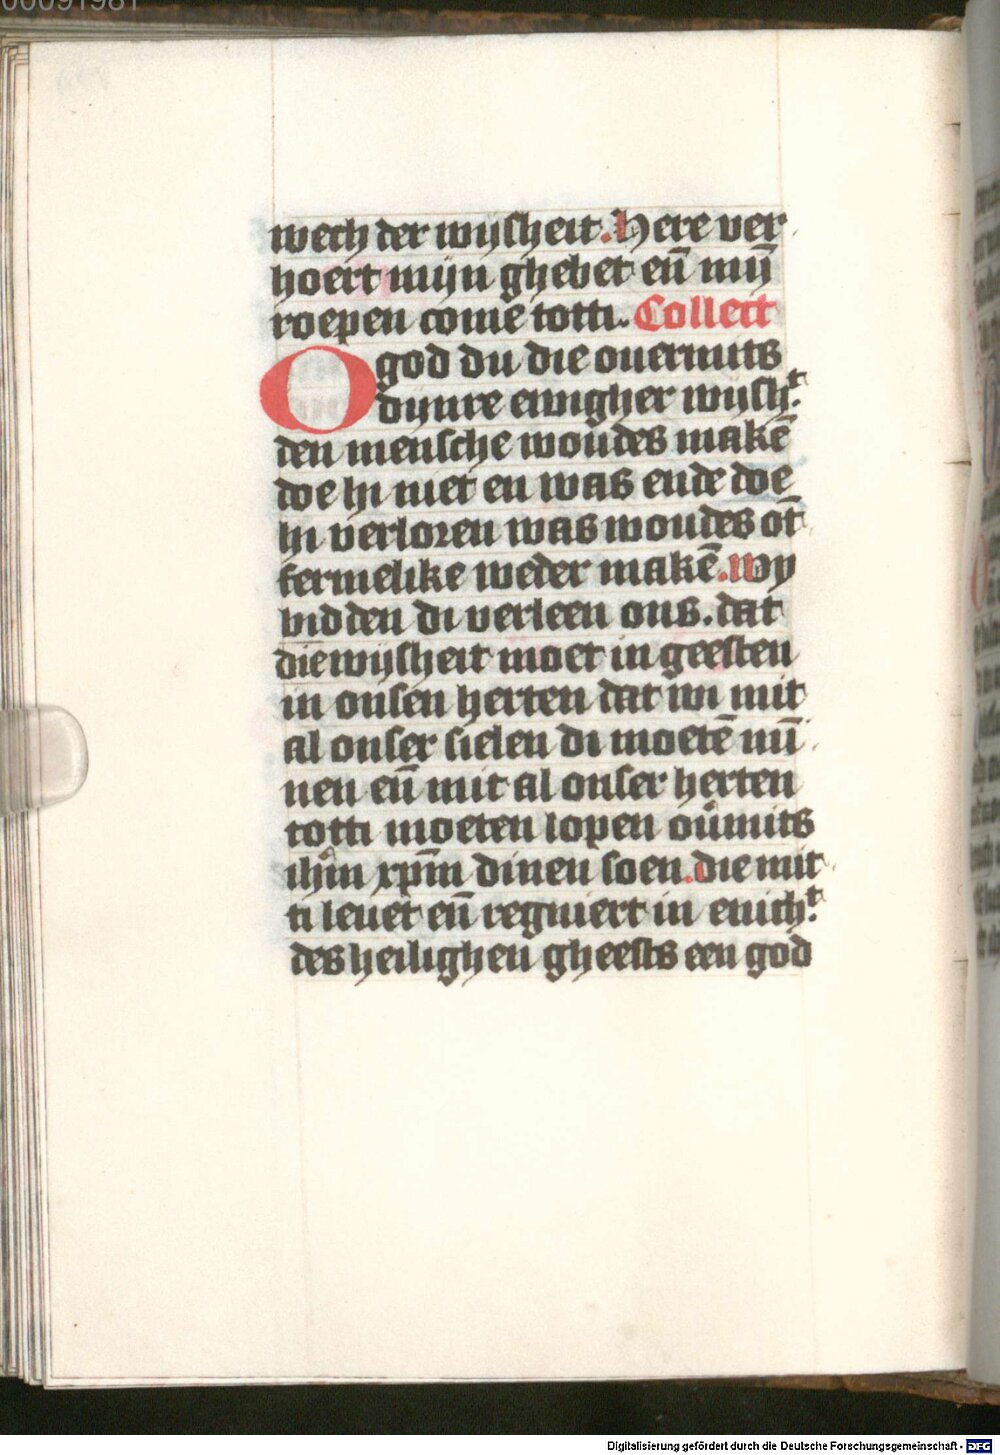 00091981
wech der wijsheit. Here ver
hoert mijn ghebet en̄ mij̄
roepen come totti. Collect
O god du die ouermits
dijnre ewigher wijsh.t
den mensche woudes makē
doe hi niet en was ende doe
hi verloren was woudes ōt
fermelike weder makē. Wy
bidden di verleen ons. dat
die wijsheit moet in geesten
in onsen herten dat wi mit
al onser sielen di moetē mī
nen en̄ mit al onser herten
totti moeten lopen ou̅mits
ihm̄ xpm̄ dinen soen. die mit
ti leuet en̄ regniert in enich.t
des heilighen gheests een god
Digitalisierung gefördert durch die Deutsche Forschungsgemeinschaft - DFG